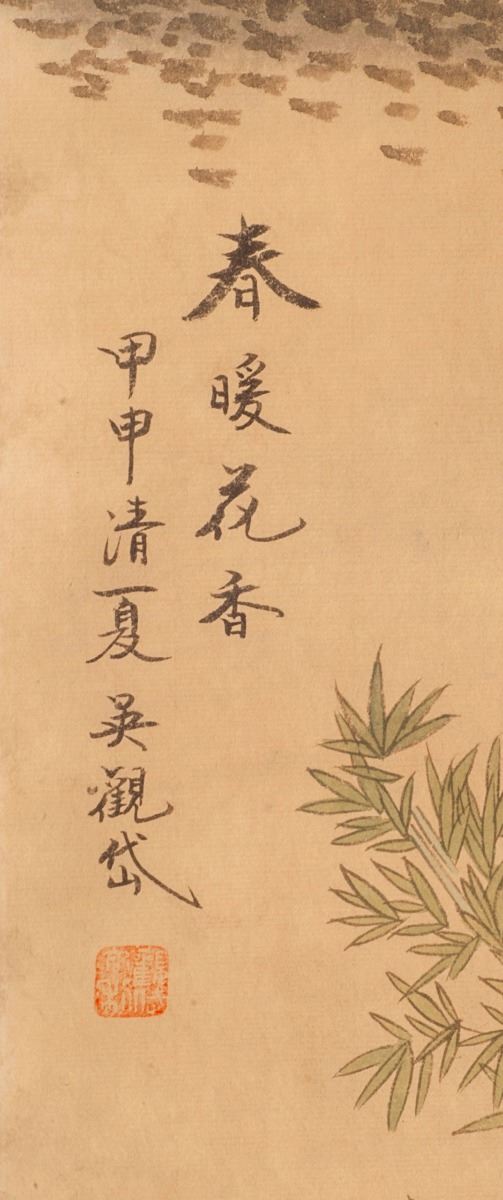 春暖花香
甲申清夏吳觀岱